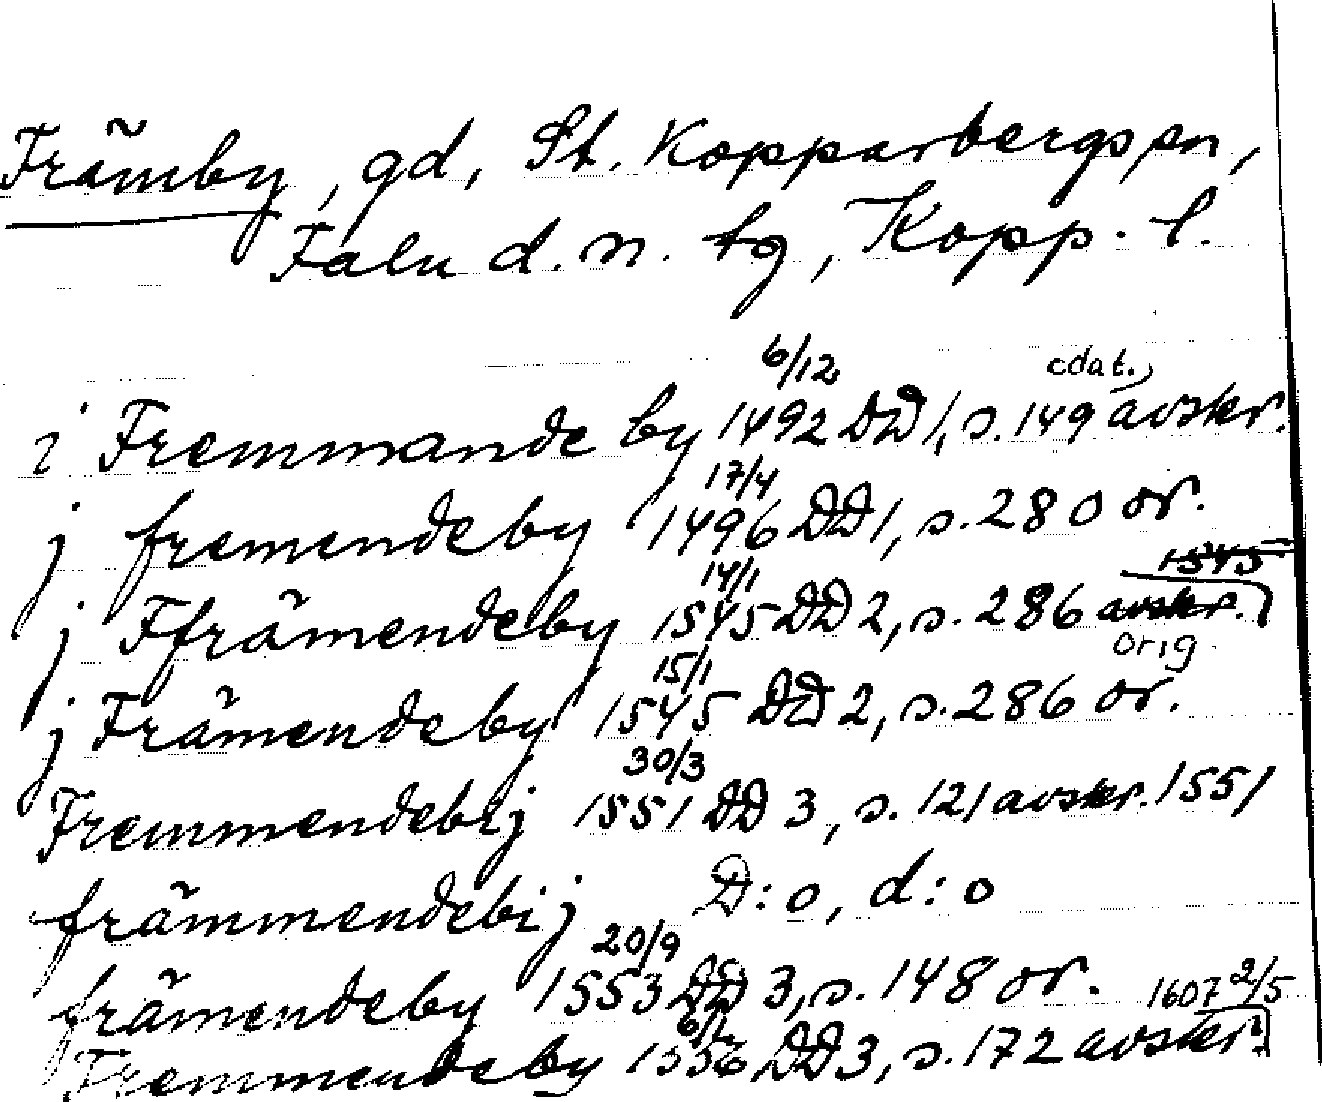 Främby, gd, St. Kopparbergs sn,
Falu d. n. tg, Kopp. l.
i Fremmande by 6/12 1492 DD 1, s. 149 odat. avskr.
j fremendeby 17/4 1496 DD 1, s. 280 or.
j Fframendeby 14/1 1545 DD 2, s. 286 avskr. 1545 orig
j Främendeby 15/1 1545 DD 2, s. 286 or.
Fremmendebij 30/3 1551 DD 3, s. 121 avskr. 1551
främmendebij D:o, d:o
främendeby 20/9 1553 DD 3, s. 148 or.
Fremmendeby 1556 DD 3, s. 172 avskr. 1607 2/5